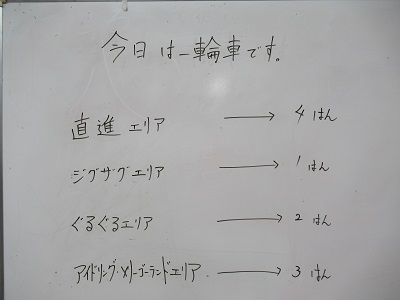 今日は一輪車です。
直進エリア → 4はん
ジグザグエリア → 1はん
ぐるぐるエリア → 2はん
アイドリング・メリーゴーランドエリア → 3はん